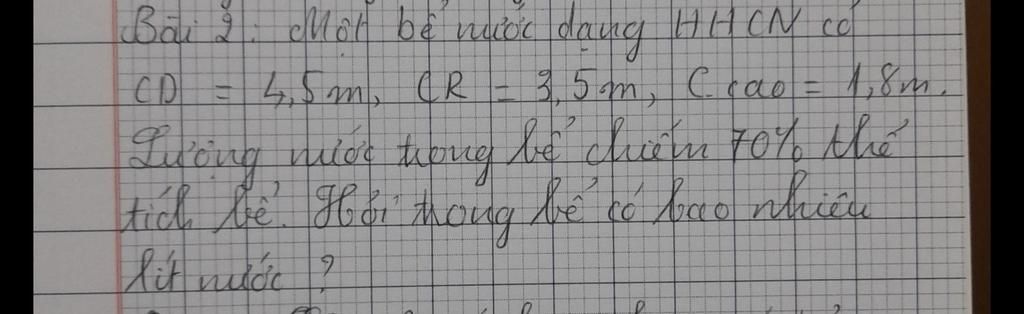 Bài 2: Một bể nước dạng HHCN có
CD = 4,5m, CR = 3,5m, C.cao = 1,8m.
Lượng nước trong bể chiếm 70% thể
tích bể. Hỏi trong bể có bao nhiêu
lít nước ?